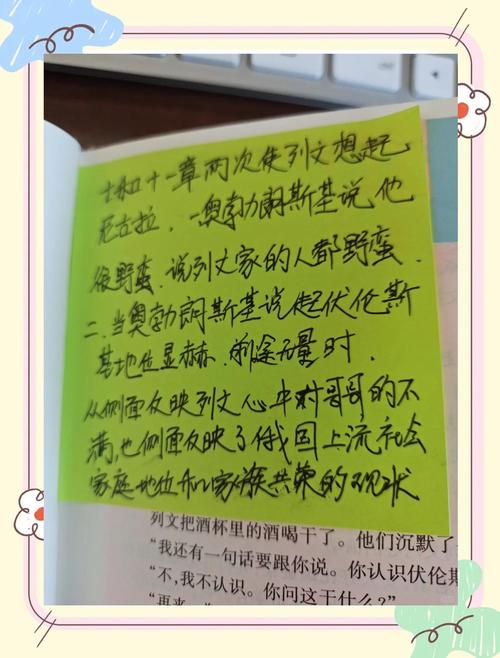 十和十一章两次使列文想起
尼古拉，一奥勃朗斯基说他
很野蛮，说列文家的人都野蛮．
二．当奥勃朗斯基说起伏伦斯
基地位显赫．前途无量时．
从侧面反映列文心中对哥哥的不
满，也侧面反映了俄国上流社会
家庭地位和家族共荣的现状
列文把酒杯里的酒喝干了。他们沉默了
“我还有一句话要跟你说。你认识伏伦斯
“不，我不认识。你问这干什么？”
“再来